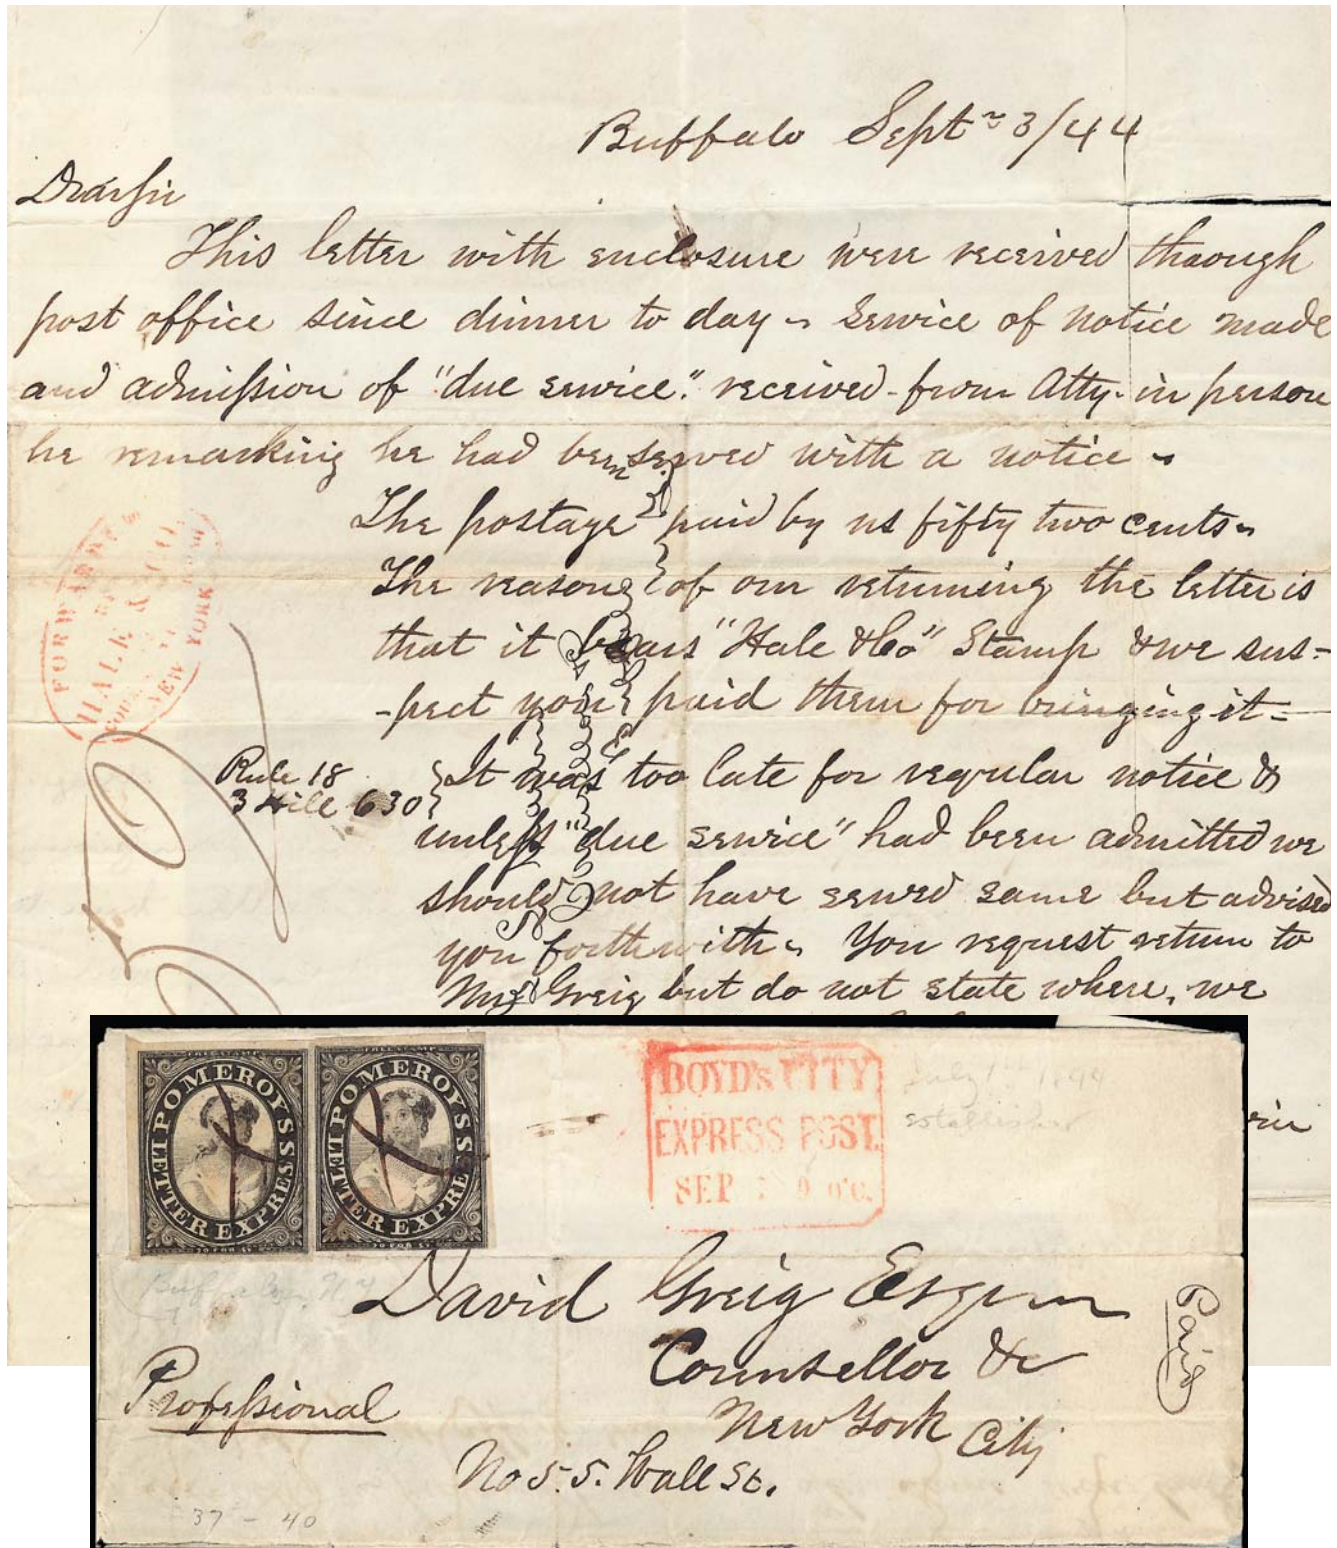 Buffalo Septr 3/44
Dear sir
This letter with enclosure were received through
post office since dinner to day - Service of notice made
and admission of "due service" received from Atty. in person
he remarking he had been served with a notice -
The postage paid by us fifty two cents -
The reason of our returning the letter is
that it bears "Hale & Co" Stamp & we sus-
-pect you paid them for bringing it =
FORWARDED
HALE & CO.
NEW YORK
Rule 18
3 Hill 630
It was too late for regular notice &
unless "due service" had been admitted we
should not have served same but advised
you forthwith - You request return to
Mr Greig but do not state where, we
50
POMEROY'S
LETTER EXPRESS
POMEROY'S
LETTER EXPRESS
BOYD'S CITY
EXPRESS POST.
SEP 9 O'C.
July 1st 1844
established
Buffalo, N.Y.
David Greig Esq
Counsellor &c
New York City
No 55. Wall St.
Professional
Paid
37 - 40